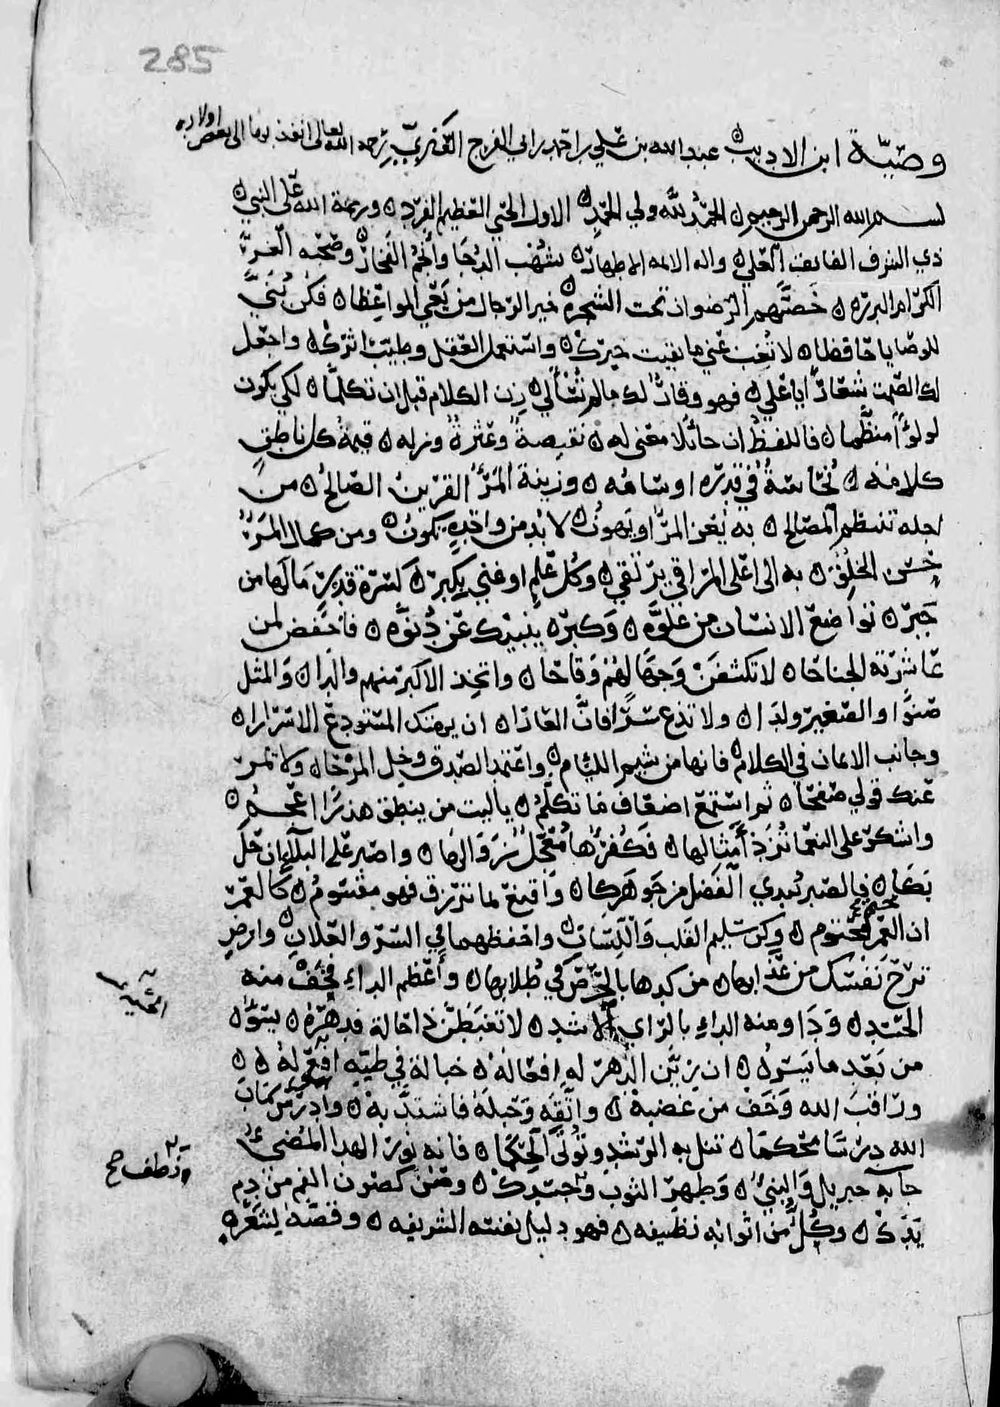 285
وصية ابن الاديب عبدالله بن علي بن احمد بن ابي الفرج رحمه الله تعالى انفذ بها الى بعض اولاده
بسم الله الرحمن الرحيم الحمد لله ولي الحمد الاول الحي العظيم الفرد ورحمة الله على النبي
ذي الشرف الفايت العلي واله الائمه الاطهار شهب الدجا وانجم الفخار وصحبه الغر
الكرام البرره خصهم الرضوان تحت الشجره خير الرجال من يعي المواعظا فكن بني
للوصايا حافظا لا تغب عني ما بقيت خيرك واستعمل العقل وطيب اثرك واجعل
لك الصمت شعارا يا علي فهو وقار لك ما لم تسأل زن الكلام قبل ان تكلما لكي يكون
لولوا منظما فاللفظ ان حال لا معنى له نقيصة وعثرة وزله قيمة كل ناطق
كلامه نحاسة في قدره او سامه وزينة المرء القرين الصالح من
اجله تنتظم المصالح به يعز المرء او يهون لا بد من واحدٍ يكون ومن كمال المرء
حسن الخلق به الى اعلى المراقي يرتقي وكل علم او غني بكبر كسرة قدرٍ ما لها من
جبر تواضع الانسان من علوه وكبره ينبيك عن دنوه فاخفض لمن
عاشرته الجناحا لا تكشفن وجها لهم وقاحا واتخذ الاكبر منهم والدا والمثل
صنوا والصغير ولدا ولا تذع سرا فان العارا ان يهتك المستودع الاسرارا
وجانب الايمان في الكلام فانها من شيم الليام واعتمد الصدق وخل المزحا ولا تمر
عنك قولي صفحا ثم استمع اضعاف ما تكلم ياليت من ينطق هذرا اعجم
واشكر على النعما تزد أمثالها فكفرها معجل زوالها واصبر على البلاء ان حل
بكا فالصبر يبدي الفضل من جوهركا واقنع بما ترزق فهو مقسوم كالعمر
ان العمر محتوم وكن سليم القلب واللسان واحفظهما في السر والعلان وارض
ترح نفسك من عذابها من كدها بالحرص في طلابها وأعظم الداء فخف منه
الحسد وداو منه الداء بالراي الاشد لا تغبطن ذا حالة فدهره يسوّه
من بعد ما يسره ان زين الدهر له افعاله خباله في طيه افعى له
وراقب الله وخف من غضبه واتقه وحبله فاشتد به وادرس كتاب
الله درسا محكما تنل به الرشد وتؤتى الحكما فانه نور الهدا المضي
جا به جبريل والنبي وطهر الثوب وجسدك وصن كصون الفم من دم
يدك وكل من اثوابه نظيفه فهو دليل نفسه الشريفه وقصه لشعره
صح